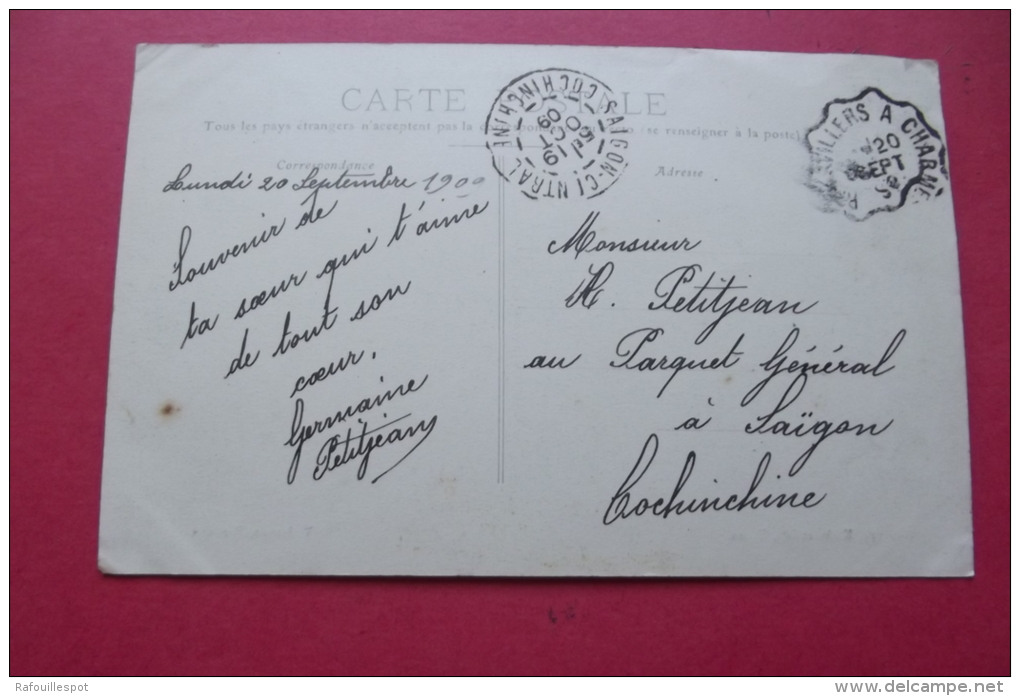 CARTE POSTALE
Tous les pays étrangers n'acceptent pas la correspondance (se renseigner à la poste)
Correspondance
Adresse
SAIGON-CENTRAL
COCHINCHINE
VILLERS A CHARMES
20
SEPT
Lundi 20 Septembre 1909
Souvenir de
ta sœur qui t'aime
de tout son
cœur.
Germaine
Petitjean
Monsieur
Petitjean
au Parquet Général
à Saïgon
Cochinchine
Rafouillespot
www.delcampe.net